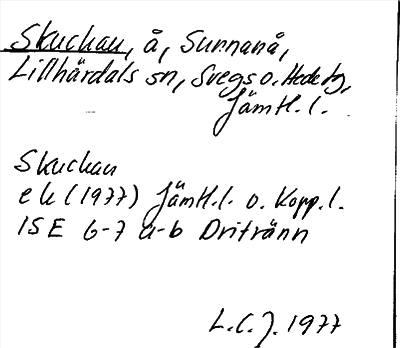 Skuchau, å, Surnanå,
Lillhärdals sn, Svegs o. Hede tg,
Jämtl. l.
Skuchau
ek (1977) Jämtl. l. o. Kopp. l.
15 E 6-7 a-b Dritränn
L.C.J. 1977